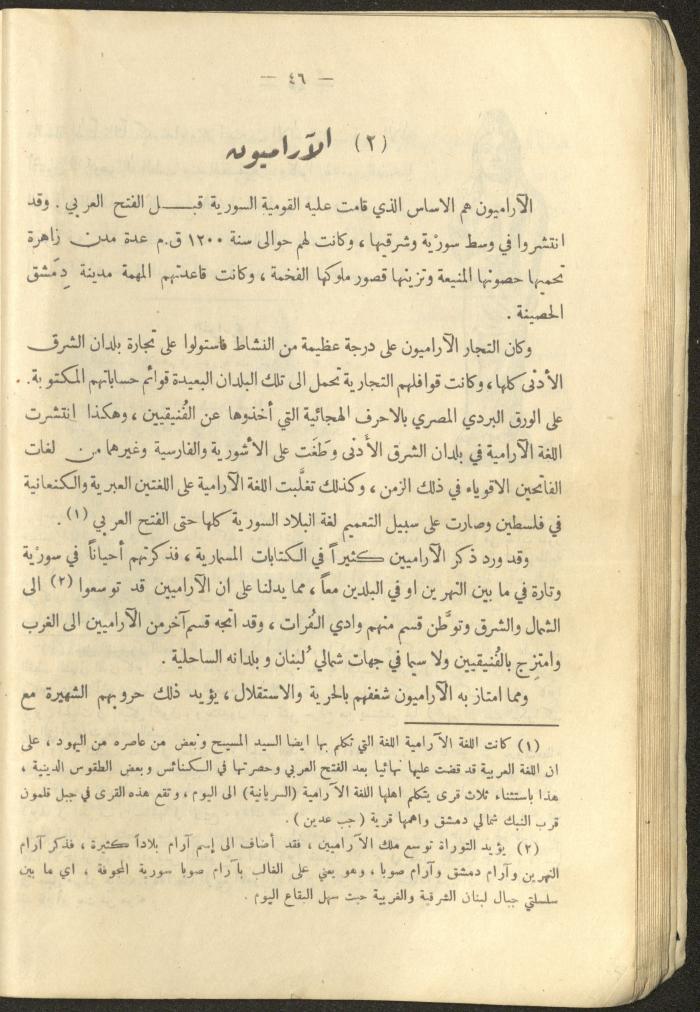 — ٤٦ —
(٢) الآراميون
الآراميون هم الاساس الذي قامت عليه القومية السورية قبل الفتح العربي . وقد
انتشروا في وسط سوريّة وشرقيها ، وكانت لهم حوالى سنة ١٢٠٠ ق.م عدة مدن زاهرة
تحميها حصونها المنيعة وتزينها قصور ملوكها الفخمة ، وكانت قاعدتهم المهمة مدينة دِمَشق
الحصينة .
وكان التجار الآراميون على درجة عظيمة من النشاط فاستولوا على تجارة بلدان الشرق
الأدنى كلها ، وكانت قوافلهم التجارية تحمل الى تلك البلدان البعيدة قوائم حساباتهم المكتوبة.
على الورق البردي المصري بالاحرف الهجائية التي أخذوها عن الفُنيقيين ، وهكذا انتشرت
اللغة الآرامية في بلدان الشرق الأَدنى وطَغَت على الأشورية والفارسية وغيرهما من لغات
الفاتحين الاقوياء في ذلك الزمن ، وكذلك تغلَّبت اللغة الآرامية على اللغتين العبرية والكنعانية
في فلسطين وصارت على سبيل التعميم لغة البلاد السورية كلها حتى الفتح العربي (١) .
وقد ورد ذكر الآراميين كثيراً في الكتابات المسمارية ، فذكرتهم أحياناً في سوريّة
وتارة في ما بين النهرين او في البلدين معاً ، مما يدلنا على ان الآراميين قد توسعوا (٢) الى
الشمال والشرق وتوطَّن قسم منهم وادي الفُرات ، وقد اتجه قسم آخر من الآراميين الى الغرب
وامتزج بالفُنيقيين ولا سيما في جهات شمالي لُبنان وبلدانه الساحلية .
ومما امتاز به الآراميون شغفهم بالحرية والاستقلال ، يؤيد ذلك حروبهم الشهيرة مع
(١) كانت اللغة الآرامية اللغة التي تكلم بها ايضا السيد المسيح وبعض من عاصره من اليهود ، على
ان اللغة العربية قد قضت عليها نهائيا بعد الفتح العربي وحصرتها في الكنائس وبعض الطقوس الدينية ،
هذا باستثناء ثلاث قرى يتكلم اهلها اللغة الآرامية (السريانية) الى اليوم ، وتقع هذه القرى في جبل قلمون
قرب النبك شمالي دمشق واهمها قرية ( جب عدين ) .
(٢) يؤيد التوراة توسع ملك الآراميين ، فقد أضاف الى إسم آرام بلاداً كثيرة ، فذكر آرام
النهرين وآرام دمشق وآرام صوبا ، وهو يعني على الغالب بآرام صوبا سورية المجوفة ، اي ما بين
سلسلتي جبال لبنان الشرقية والغربية حيث سهل البقاع اليوم .